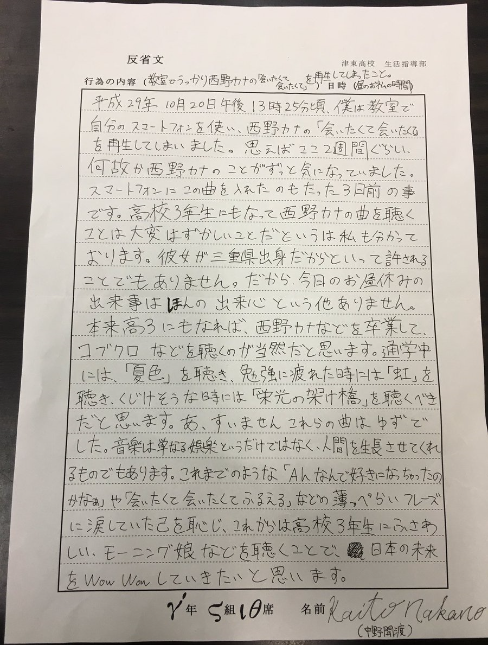 反省文
津東高校 生活指導部
行為の内容 (教室でうっかり西野カナの「会いたくて会いたくて」を再生してしまったこと。) 日時 (昼のお休みの時間)
平成29年10月20日午後13時25分頃、僕は教室で
自分のスマートフォンを使い、西野カナの「会いたくて会いたくて」
を再生してしまいました。思えばここ2週間ぐらい、
何故か西野カナのことがずっと気になっていました。
スマートフォンにこの曲を入れたのもたった3日前の事
です。高校3年生にもなって西野カナの曲を聴く
ことは大変はずかしいことだというは私も分かって
おります。彼女が三重県出身だからといって許される
ことでもありません。だから今日のお昼休みの
出来事はほんの出来心という他ありません。
本来高3にもなれば、西野カナなどを卒業して、
コブクロなどを聴くのが当然だと思います。通学中
には、「夏色」を聴き、勉強に疲れた時には「虹」を
聴き、くじけそうな時には「栄光の架け橋」を聴くべき
だと思います。あ、すいませんこれらの曲はゆずで
した。音楽は単なる娯楽というだけではなく、人間を生長させてくれ
るものでもあります。これまでのような「Ahなんで好きになっちゃったの
かなぁ」や「会いたくて会いたくてふるえる」などの薄っぺらいフレーズ
に涙していた己を恥じ、これからは高校3年生にふさわ
しい、モーニング娘などを聴くことで、日本の未来
をWow Wowしていきたいと思います。
年 組 席 名前 Kaito Nakano
(中野開渡)